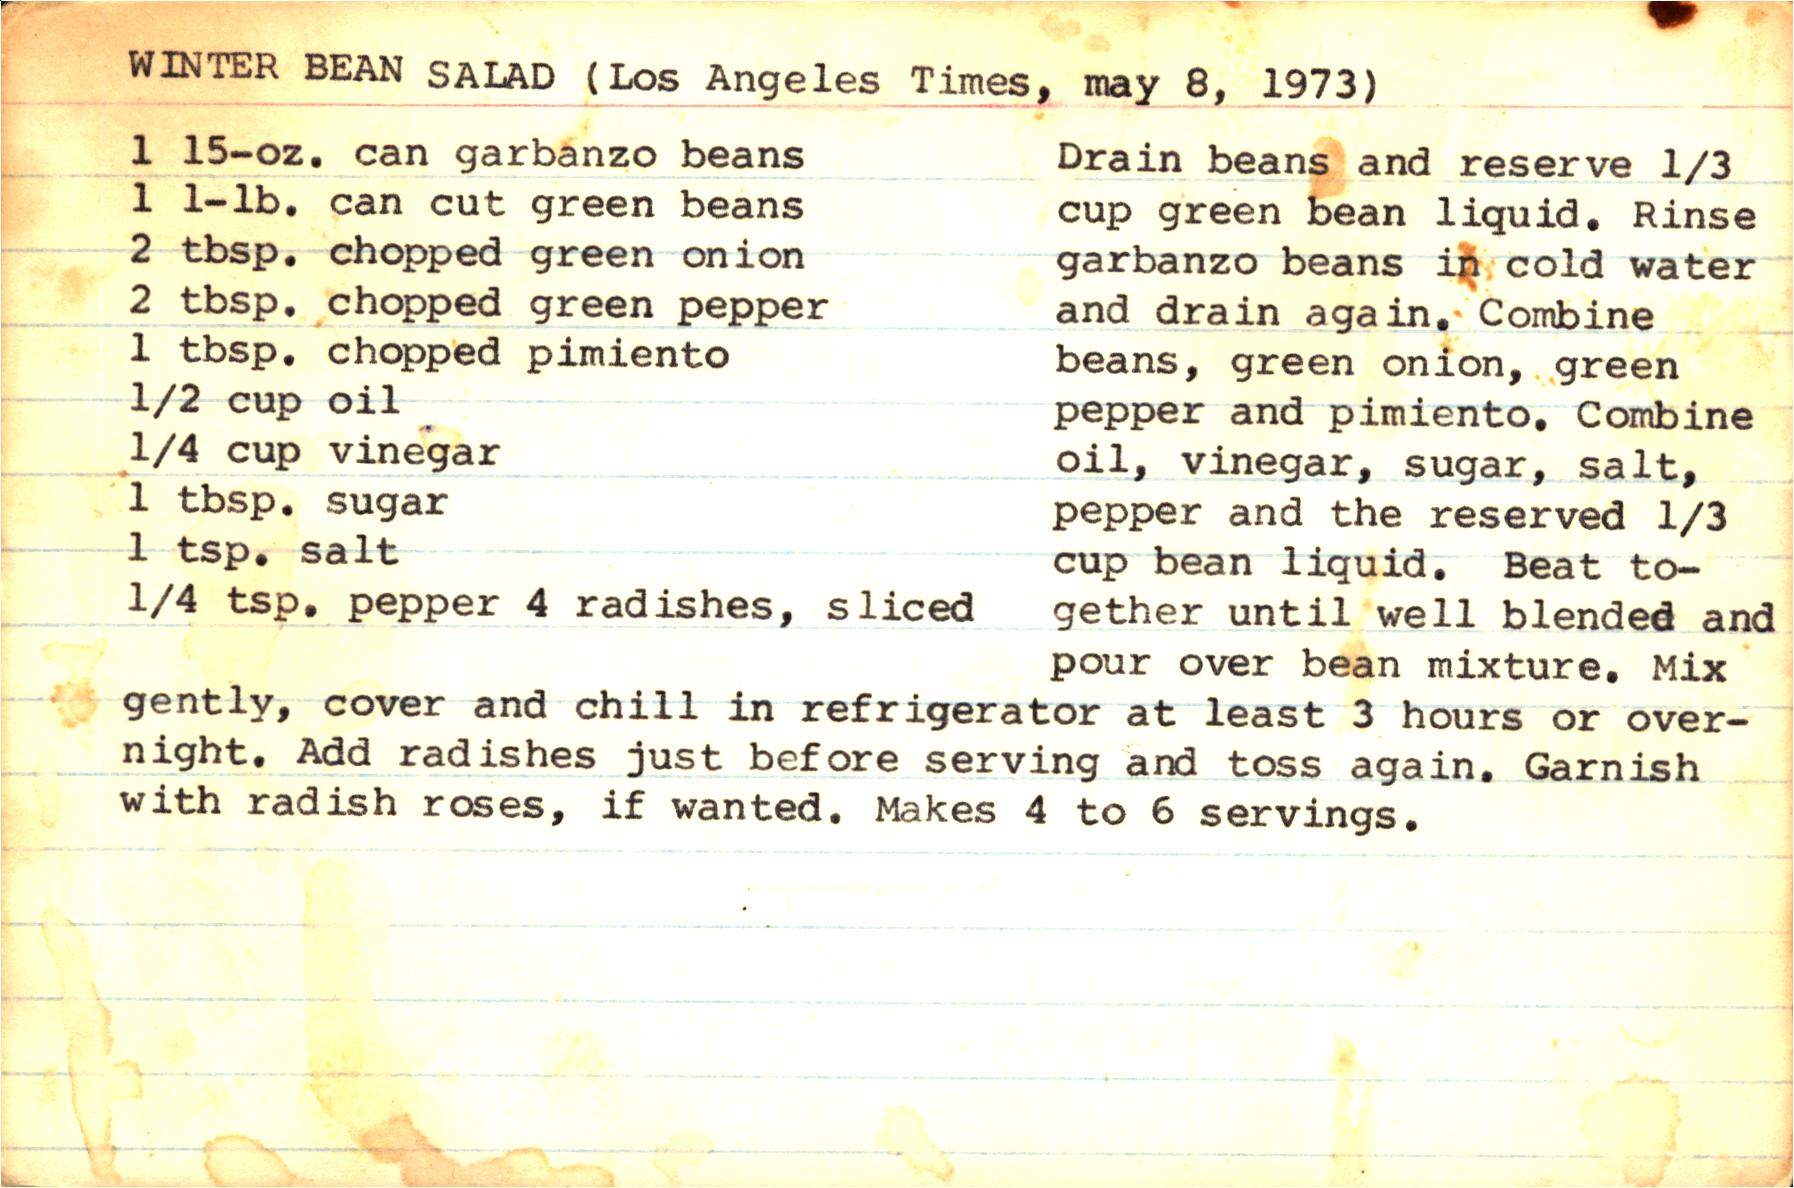 WINTER BEAN SALAD (Los Angeles Times, may 8, 1973)
1 15-oz. can garbanzo beans
1 1-lb. can cut green beans
2 tbsp. chopped green onion
2 tbsp. chopped green pepper
1 tbsp. chopped pimiento
1/2 cup oil
1/4 cup vinegar
1 tbsp. sugar
1 tsp. salt
1/4 tsp. pepper 4 radishes, sliced
Drain beans and reserve 1/3
cup green bean liquid. Rinse
garbanzo beans in cold water
and drain again. Combine
beans, green onion, green
pepper and pimiento. Combine
oil, vinegar, sugar, salt,
pepper and the reserved 1/3
cup bean liquid. Beat to-
gether until well blended and
pour over bean mixture. Mix
gently, cover and chill in refrigerator at least 3 hours or over-
night. Add radishes just before serving and toss again. Garnish
with radish roses, if wanted. Makes 4 to 6 servings.